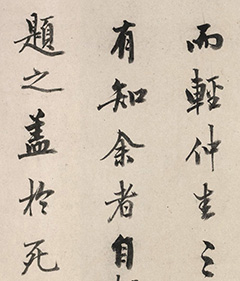 而輕仲生之
有知余者自
題之蓋於死